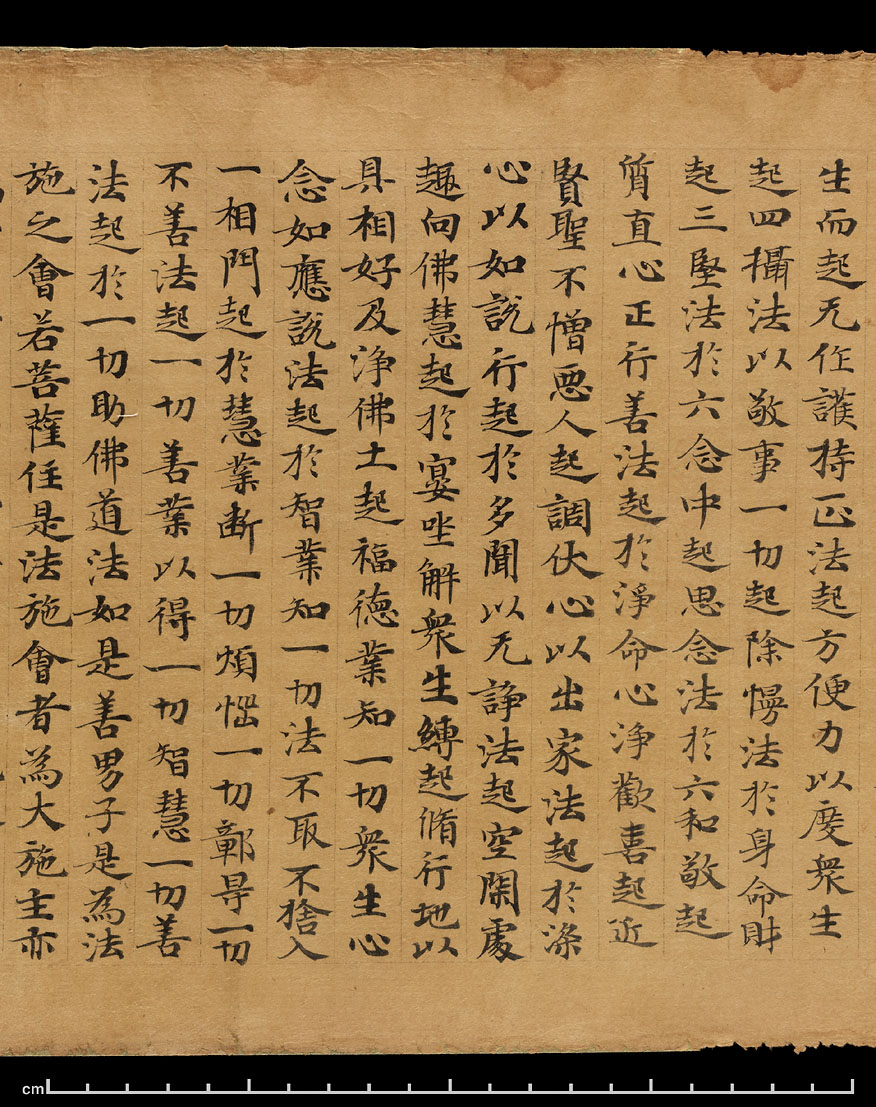 生而起无作護持正法起方便力以度衆生
起四攝法以敬事一切起除慢法於身命財
起三堅法於六念中起思念法於六和敬起
質直心正行善法起於淨命心淨歡喜起近
賢聖不憎惡人起調伏心以出家法起於深
心以如說行起於多聞以无諍法起空閑處
趣向佛慧起於宴坐解衆生縛起脩行地以
具相好及淨佛土起福德業知一切衆生心
念如應說法起於智業知一切法不取不捨入
一相門起於慧業斷一切煩惱一切鄣㝵一切
不善法起一切善業以得一切智慧一切善
法起於一切助佛道法如是善男子是為法
施之會若菩薩住是法施會者為大施主亦